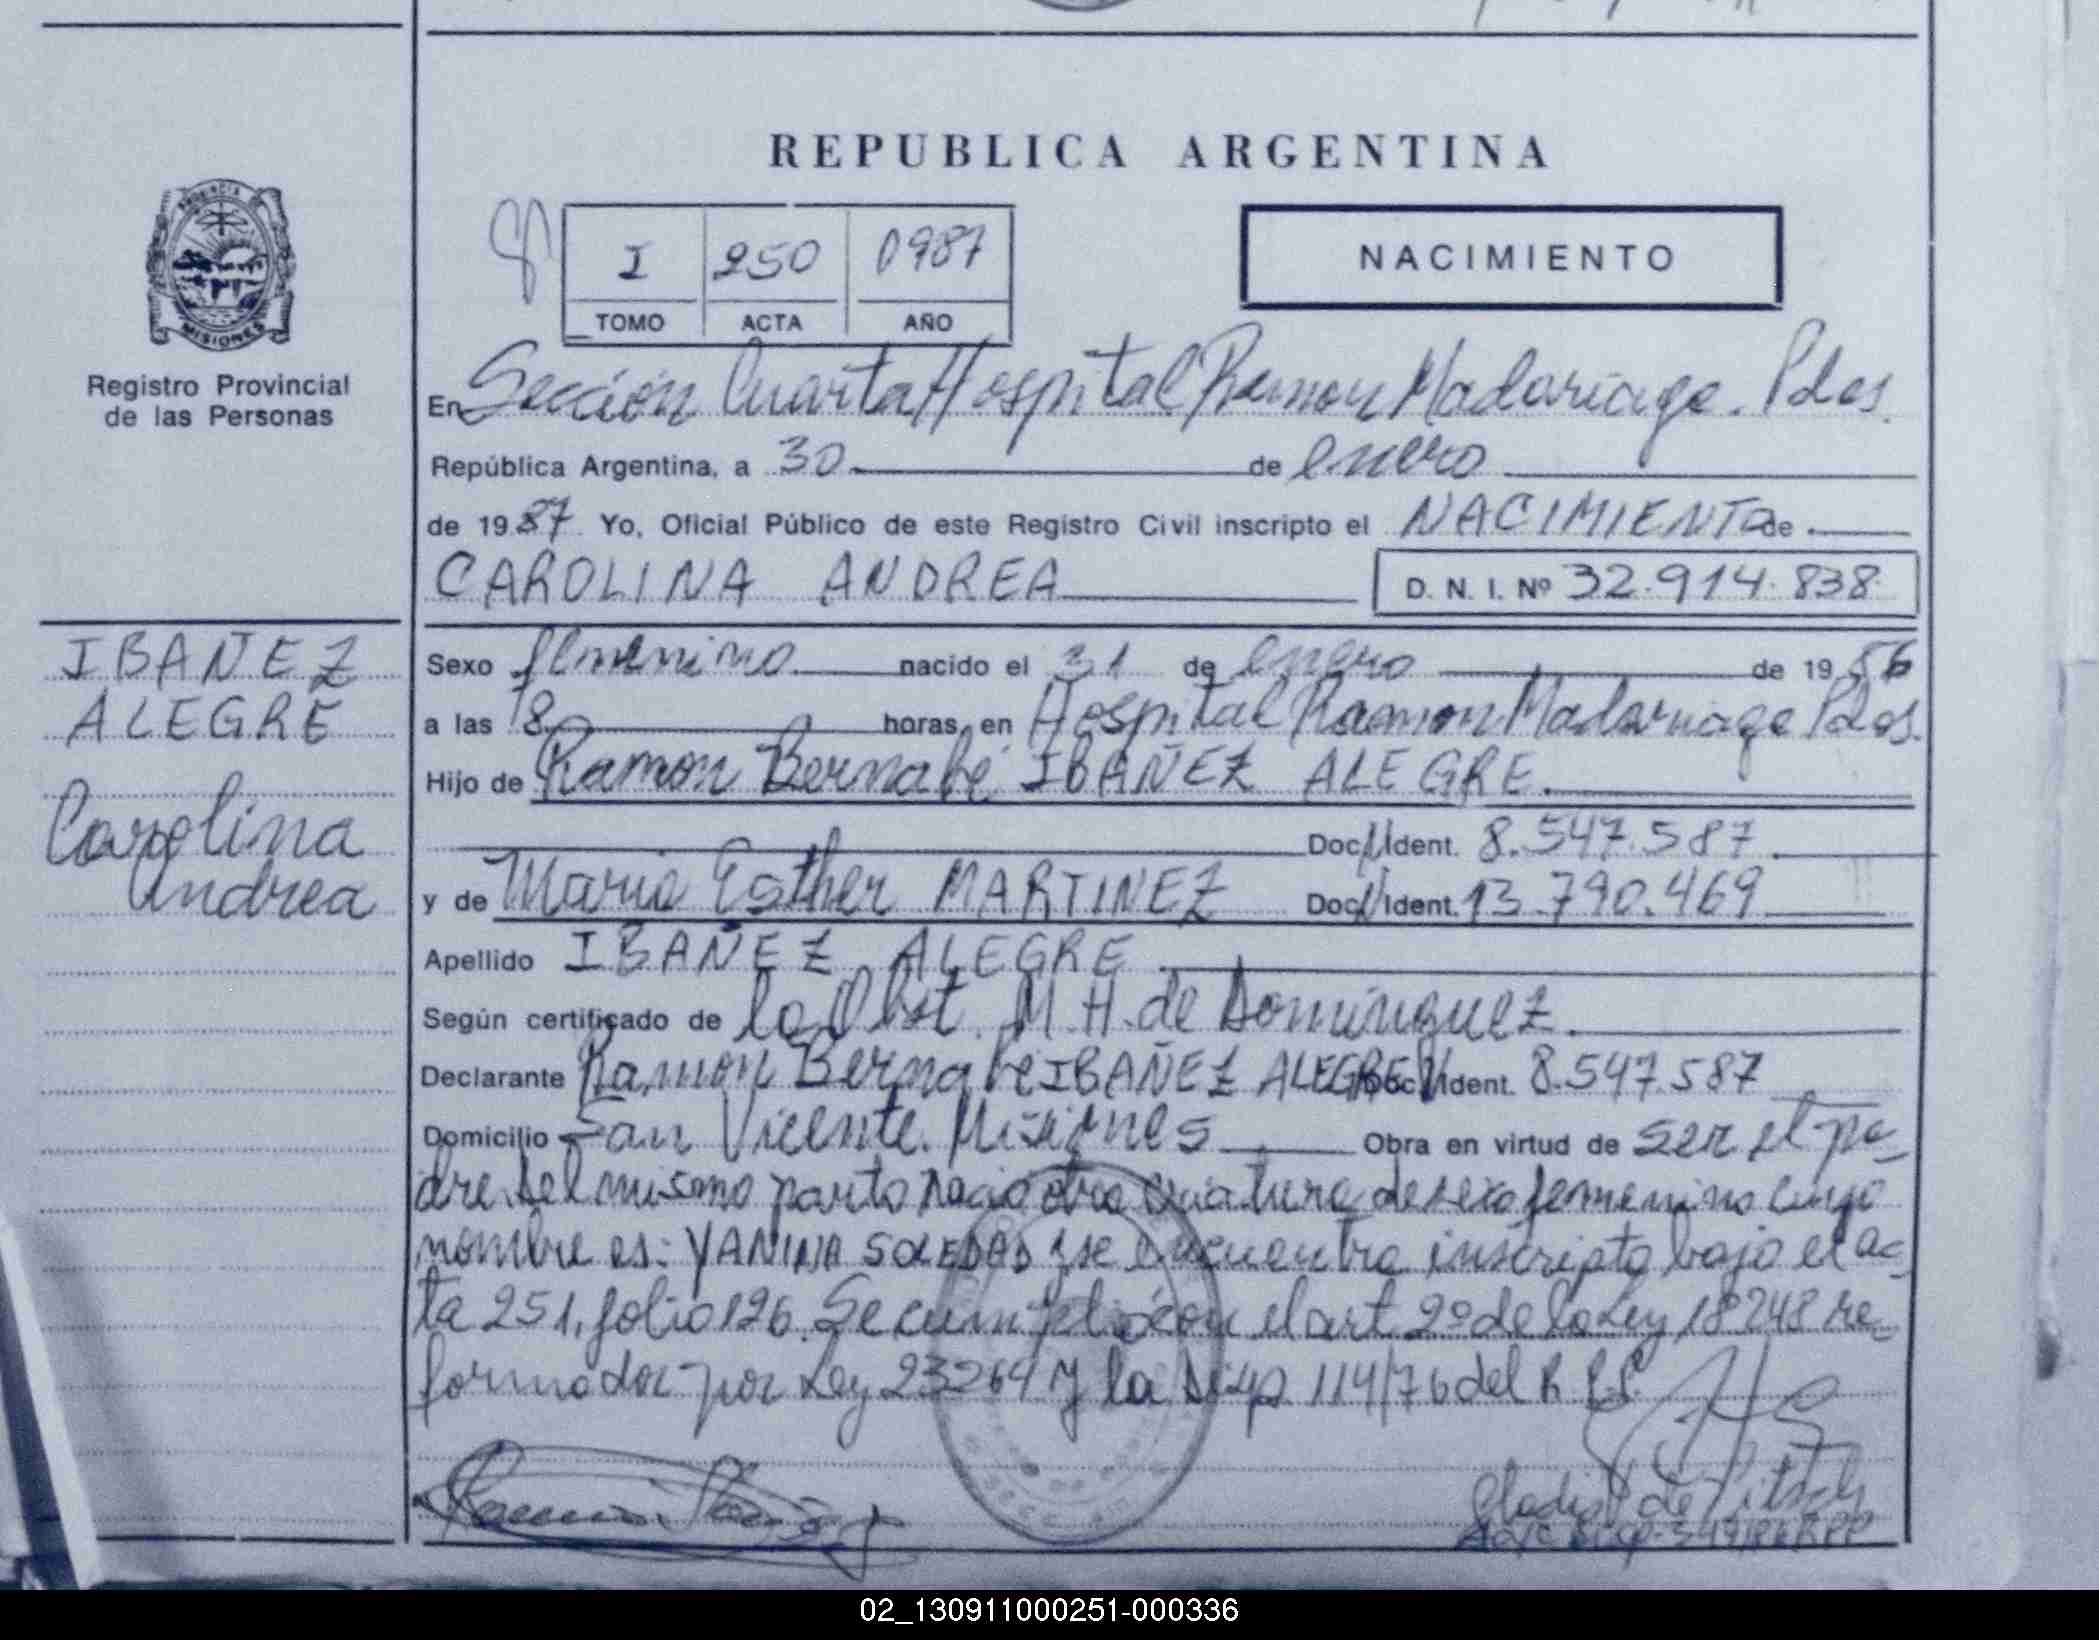 REPUBLICA ARGENTINA
I 250 0987
TOMO ACTA AÑO
NACIMIENTO
PROVINCIA
MISIONES
Registro Provincial
de las Personas
En Sección Cuarta Hospital Ramon Madariaga. Pdas.
República Argentina, a 30 de enero
de 1987 Yo, Oficial Público de este Registro Civil inscripto el NACIMIENTO de
CAROLINA ANDREA D. N. I. Nº 32.914.838
IBAÑEZ
ALEGRE
Carolina
Andrea
Sexo femenino nacido el 31 de enero de 19
a las 18 horas, en Hospital Ramon Madariaga Pdas.
Hijo de Ramon Bernabé IBAÑEZ ALEGRE.
Doc. Ident. 8.547.587
y de Maria Esther MARTINEZ Doc. Ident. 13.790.469
Apellido IBAÑEZ ALEGRE
Según certificado de la Obst. M. H. de Dominguez
Declarante Ramon Bernabé IBAÑEZ ALEGRE Doc. Ident. 8.547.587
Domicilio San Vicente. Misiones Obra en virtud de ser el pa-
dre. Del mismo parto nacio otra criatura de sexo femenino cuyo
nombre es: YANINA SOLEDAD y se encuentra inscripta bajo el ac-
ta 251, folio 126. Se cumplió con el art 2º de la Ley 18248 re-
formado por Ley 23264 y la Disp. 114/76 del R.P.P.
Gladis de
02_130911000251-000336